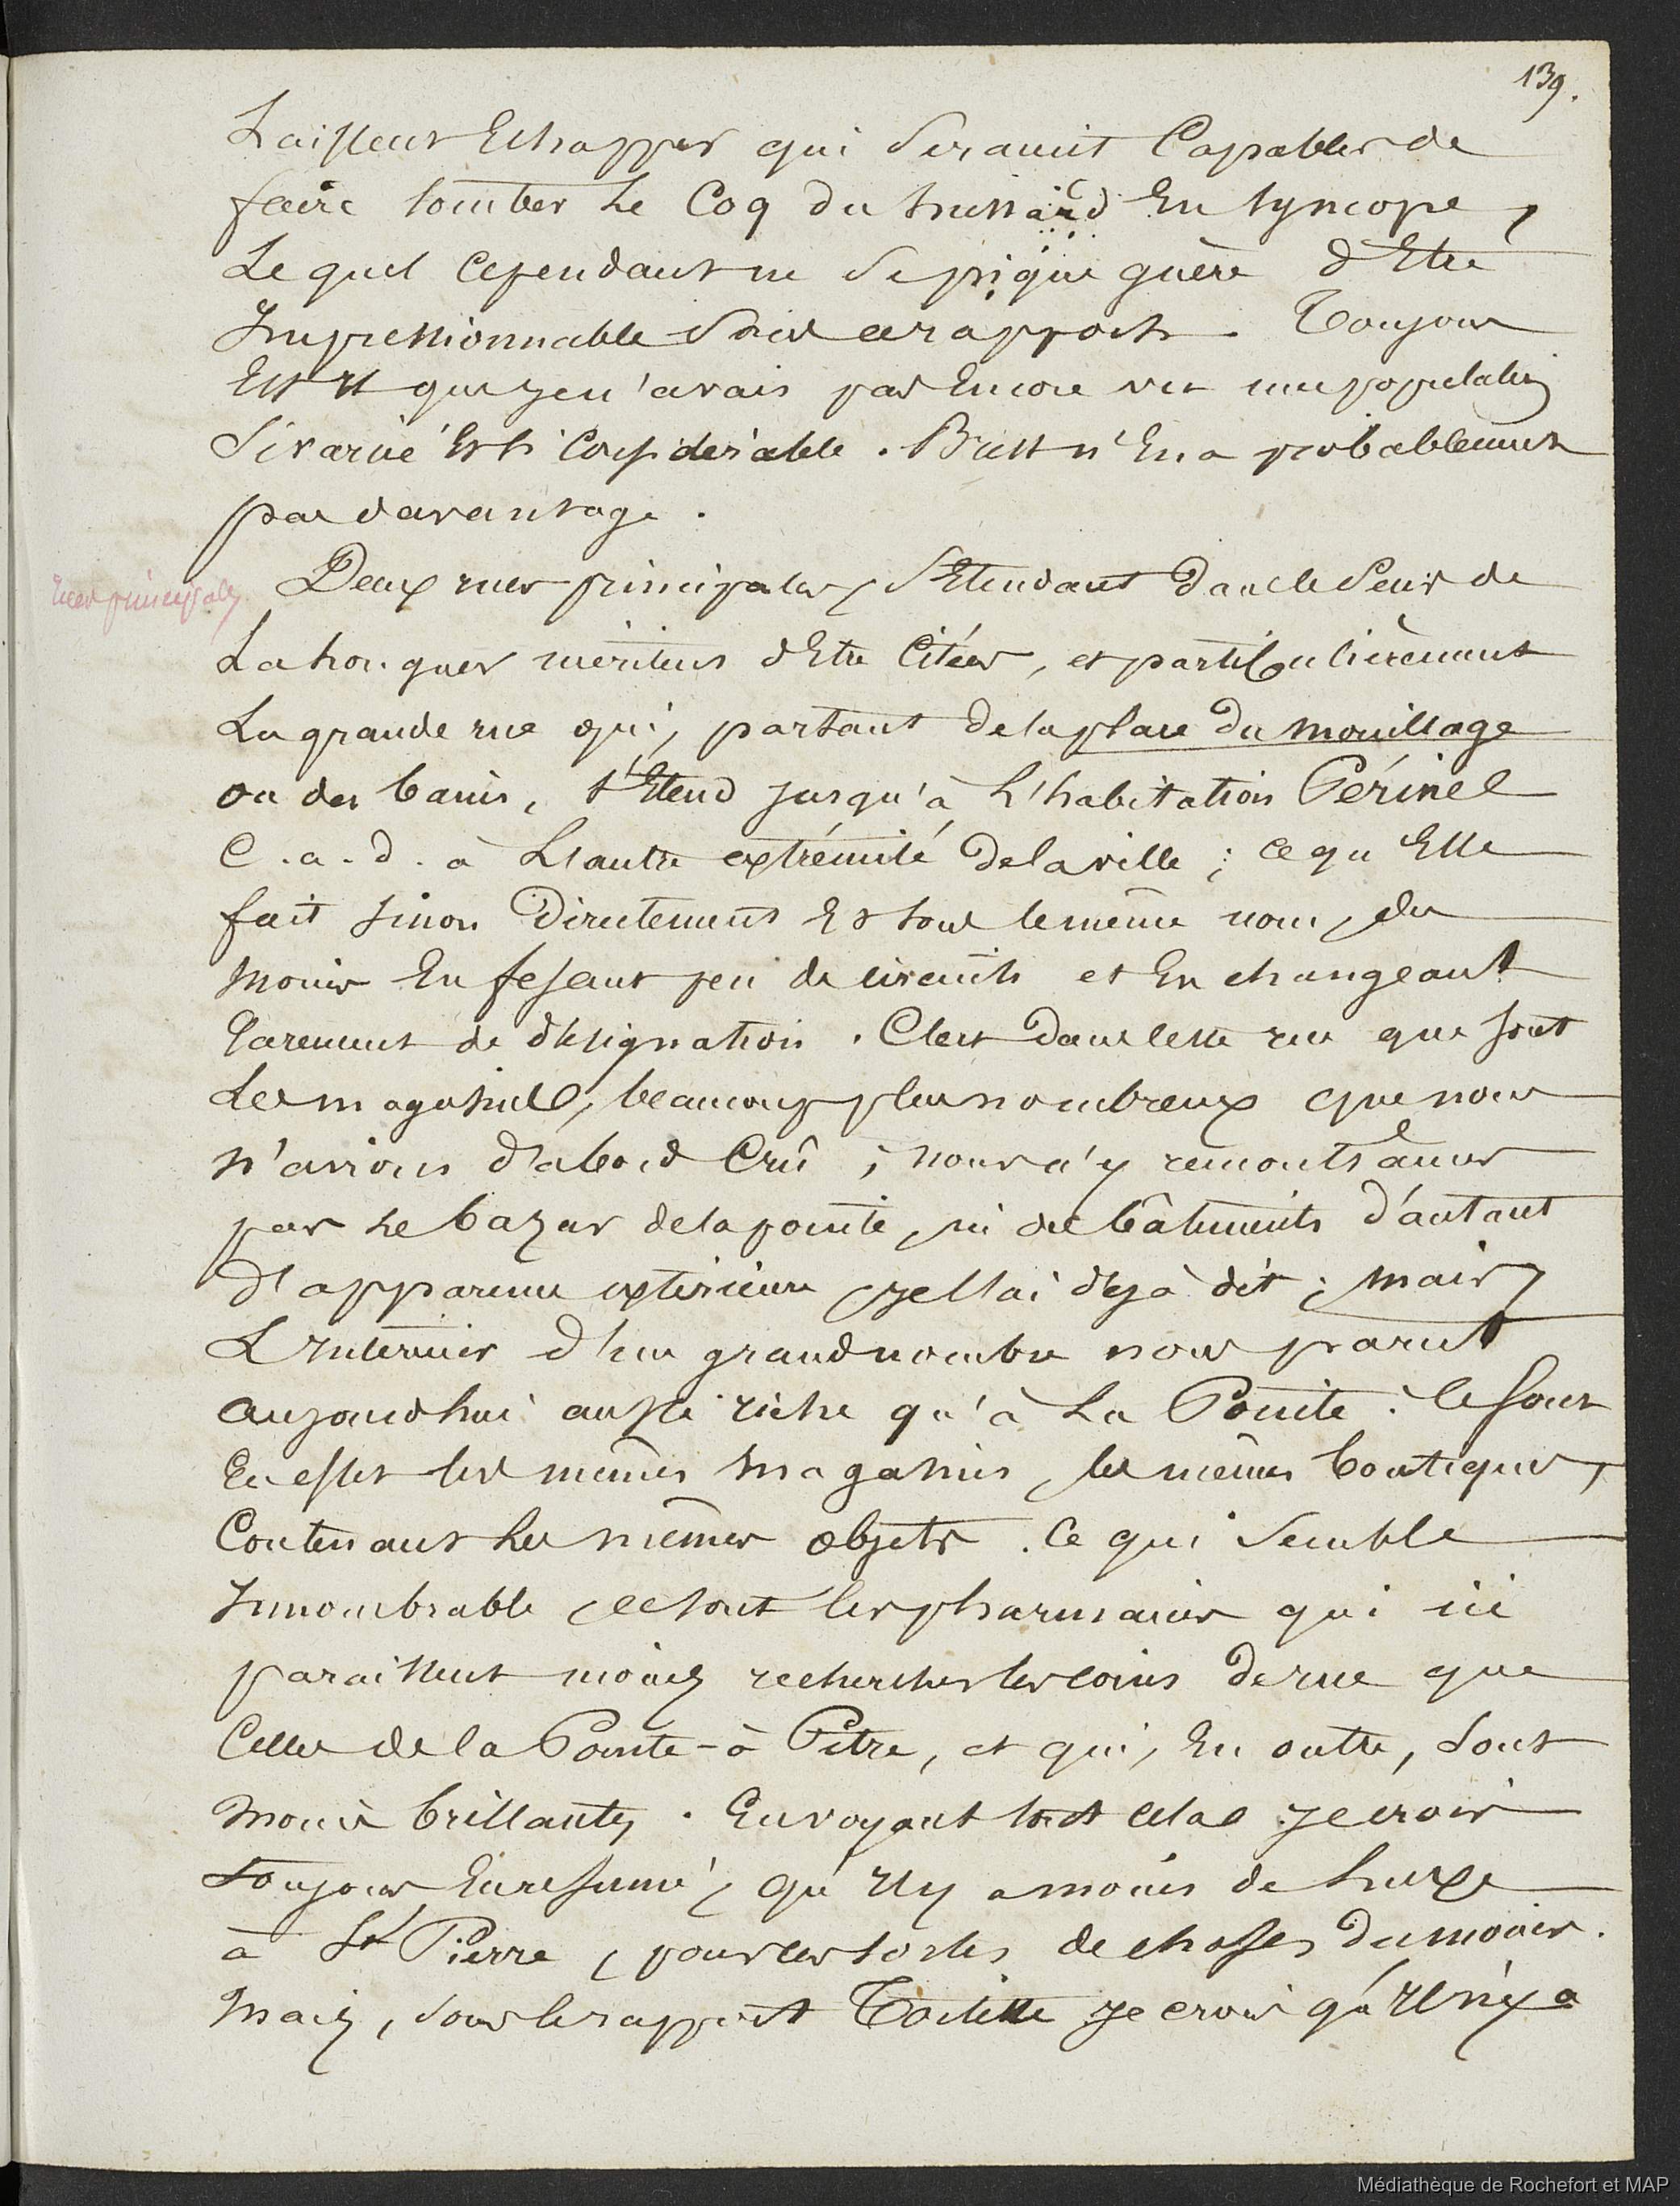 139.
Laissent Echapper qui Seraient Capables de
faire tomber Le Coq du hussard En syncope,
Lequel Cependant ne Se pique guère d'Etre
Impressionnable Sous ce rapport. Toujours
Est il que je n'avais pas Encore vu une population
Si variée Et si Considérable. Brest n'En a probablement
pas davantage.
Rues principales
Deux rues principales, S'Etendant dans le Sens de
La longueur méritent d'Etre Citées, et particulièrement
La grande rue qui, partant de la place du Mouillage
ou des bains, s'Etend jusqu'à L'habitation Périnel
C.a.d. à L'autre extrémité de la ville; ce qu'Elle
fait sinon Directement Et sous le même nom, du
Moins En fesant peu de circuits et En changeant
rarement de désignation. C'est dans cette rue que sont
Les magasins, beaucoup plus nombreux que nous
n'avions d'abord Crû; nous n'y remontrâmes
pas Le bazar de la pointe, ni de bâtiments d'autant
d'apparence extérieure, je l'ai déjà dit; Mais,
L'Intérieur d'un grand nombre nous parut
aujourd'hui aussi riche qu'à La Pointe: Ce sont
En effet les mêmes Magasins, les mêmes boutiques,
Contenant Les mêmes objets. Ce qui Semble
Innombrable, ce sont les pharmacies qui ici
paraissent moins rechercher les coins de rue que
Celles de la Pointe-à Pitre, et qui, En outre, Sont
Moins brillantes. En voyant tout cela je crois
toujours En résumé, qu'Il y a moins de Luxe
à St Pierre, pour ces sortes de choses du moins.
Mais, sous le rapport Toilette je crois qu'Il n'y a
Médiathèque de Rochefort et MAP